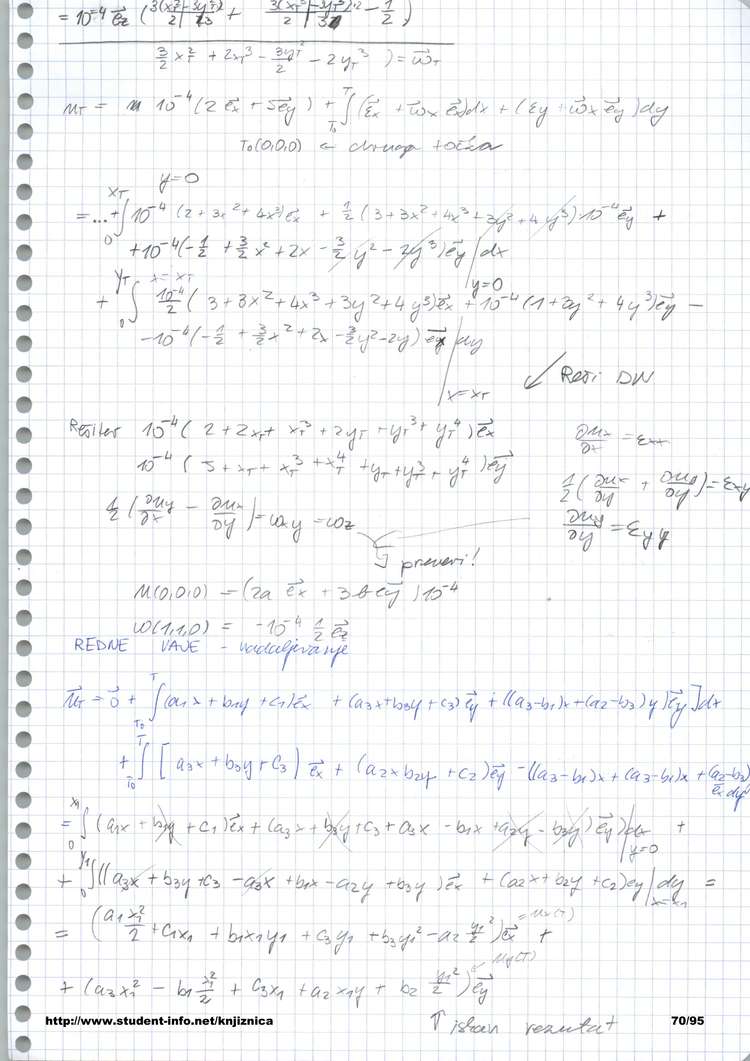 = 10⁻⁴ e⃗z ( 3(x_T² - 3y_T²)/2 + 3(x_T² - 3y_T²)/2 - 1/2 )
3/2 x_T² + 2x_T³ - 3y_T²/2 - 2y_T³ ) = ω⃗_T
u_T = 10⁻⁴ (2 e⃗x + 5 e⃗y) + ∫_{T₀}^{T} (ε⃗x + ω⃗ x e⃗x) dx + (εy + ω⃗ x e⃗y) dy
T₀(0,0,0) ← druga točka
y=0
= ... + ∫_0^{x_T} 10⁻⁴ (2 + 3x² + 4x³) e⃗x + 1/2 (3 + 3x² + 4x³ + 3y² + 4y³) 10⁻⁴ e⃗y +
+ 10⁻⁴ (-1/2 + 3/2 x² + 2x - 3/2 y² - 2y³) e⃗y | dx
y=0
x = x_T
+ ∫_0^{y_T} 10⁻⁴/2 (3 + 3x² + 4x³ + 3y² + 4y³) e⃗x + 10⁻⁴ (1 + 3y² + 4y³) e⃗y -
- 10⁻⁴ (-1/2 + 3/2 x² + 2x - 3/2 y² - 2y) e⃗x | dy
x = x_T
↙ Reši DN
Rešitev 10⁻⁴ ( 2 + 2x_T + x_T³ + 2y_T + y_T³ + y_T⁴ ) e⃗x
10⁻⁴ ( 5 + x_T + x_T³ + x_T⁴ + y_T + y_T³ + y_T⁴ ) e⃗y
∂ux/∂x = εxx
1/2 (∂ux/∂y + ∂uy/∂y) = εxy
∂uy/∂y = εyy
1/2 (∂uy/∂x - ∂ux/∂y) = ωxy = ωz
preveri!
u(0,0,0) = (2a e⃗x + 3b e⃗y) 10⁻⁴
ω(1,1,0) = -10⁻⁴ 1/2 e⃗z
REDNE VAJE - nadaljevanje
u⃗_T = 0⃗ + ∫_{T₀}^{T} (a₁x + b₁y + c₁) e⃗x + (a₃x + b₃y + c₃) e⃗y + ((a₃-b₁)x + (a₂-b₃)y) e⃗y ] dx
+ ∫_{T₀}^{T} [ a₃x + b₃y + c₃ ) e⃗x + (a₂x b₂y + c₂) e⃗y - ((a₃-b₁)x + (a₃-b₁)x + (a₂-b₃) e⃗x dy
= ∫_0^{x₁} (a₁x + b₁y + c₁) e⃗x + (a₃x + b₃y + c₃ + a₃x - b₁x + a₂y - b₃y) e⃗y | dx +
y=0
+ ∫_0^{y₁} ((a₃x + b₃y + c₃ - a₃x + b₁x - a₂y + b₃y) e⃗x + (a₂x + b₂y + c₂) ey | dy =
x=x₁
= (a₁x₁²/2 + c₁x₁ + b₁x₁y₁ + c₃y₁ + b₃y₁² - a₂ y₁²/2) e⃗x +
= ux(T)
+ (a₃x₁² - b₁ x₁²/2 + c₃x₁ + a₂x₁y + b₂ y₁²/2) e⃗y
uy(T)
↑ iskan rezultat
http://www.student-info.net/knjiznica
70/95